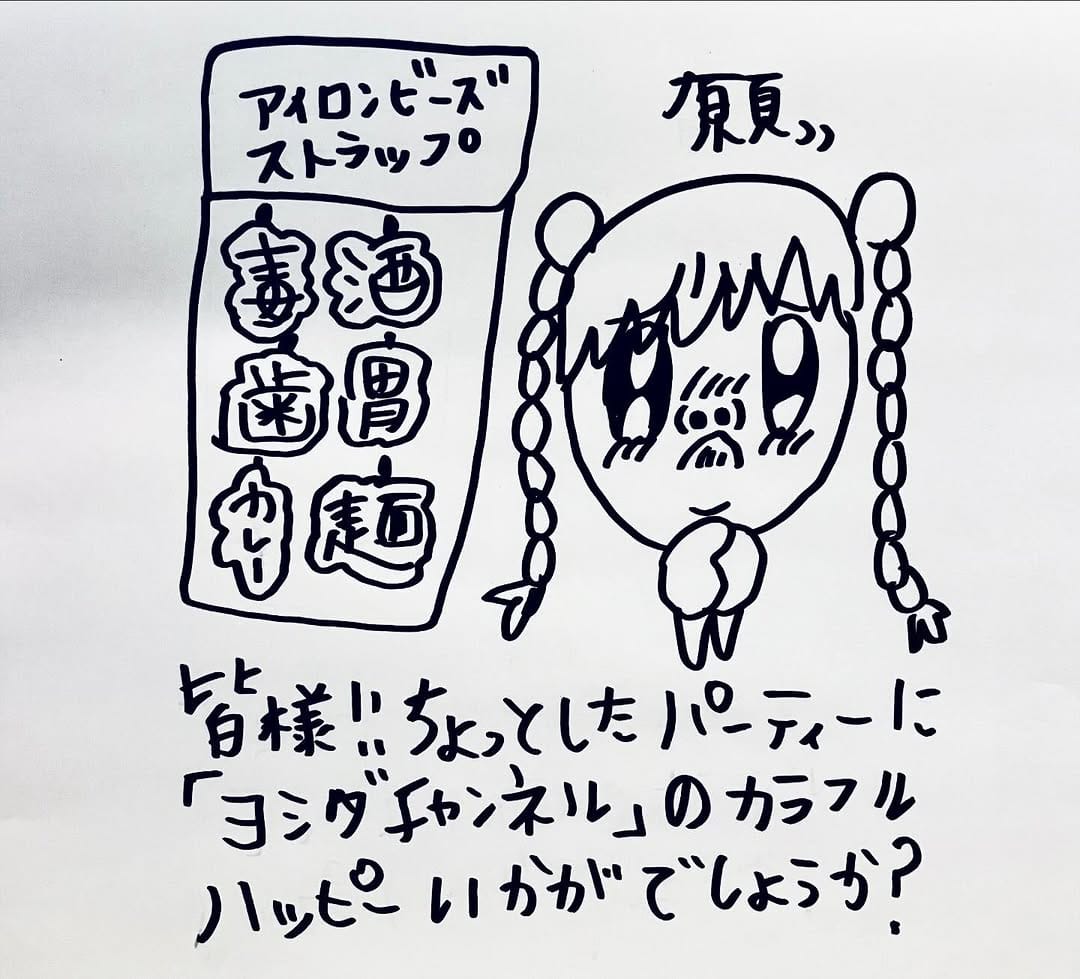 アイロンビーズ
ストラップ
願〃
毒
酒
歯
胃
カレー
麺
皆様!!ちょっとしたパーティーに
「ヨシダチャンネル」のカラフル
ハッピーいかがでしょうか?